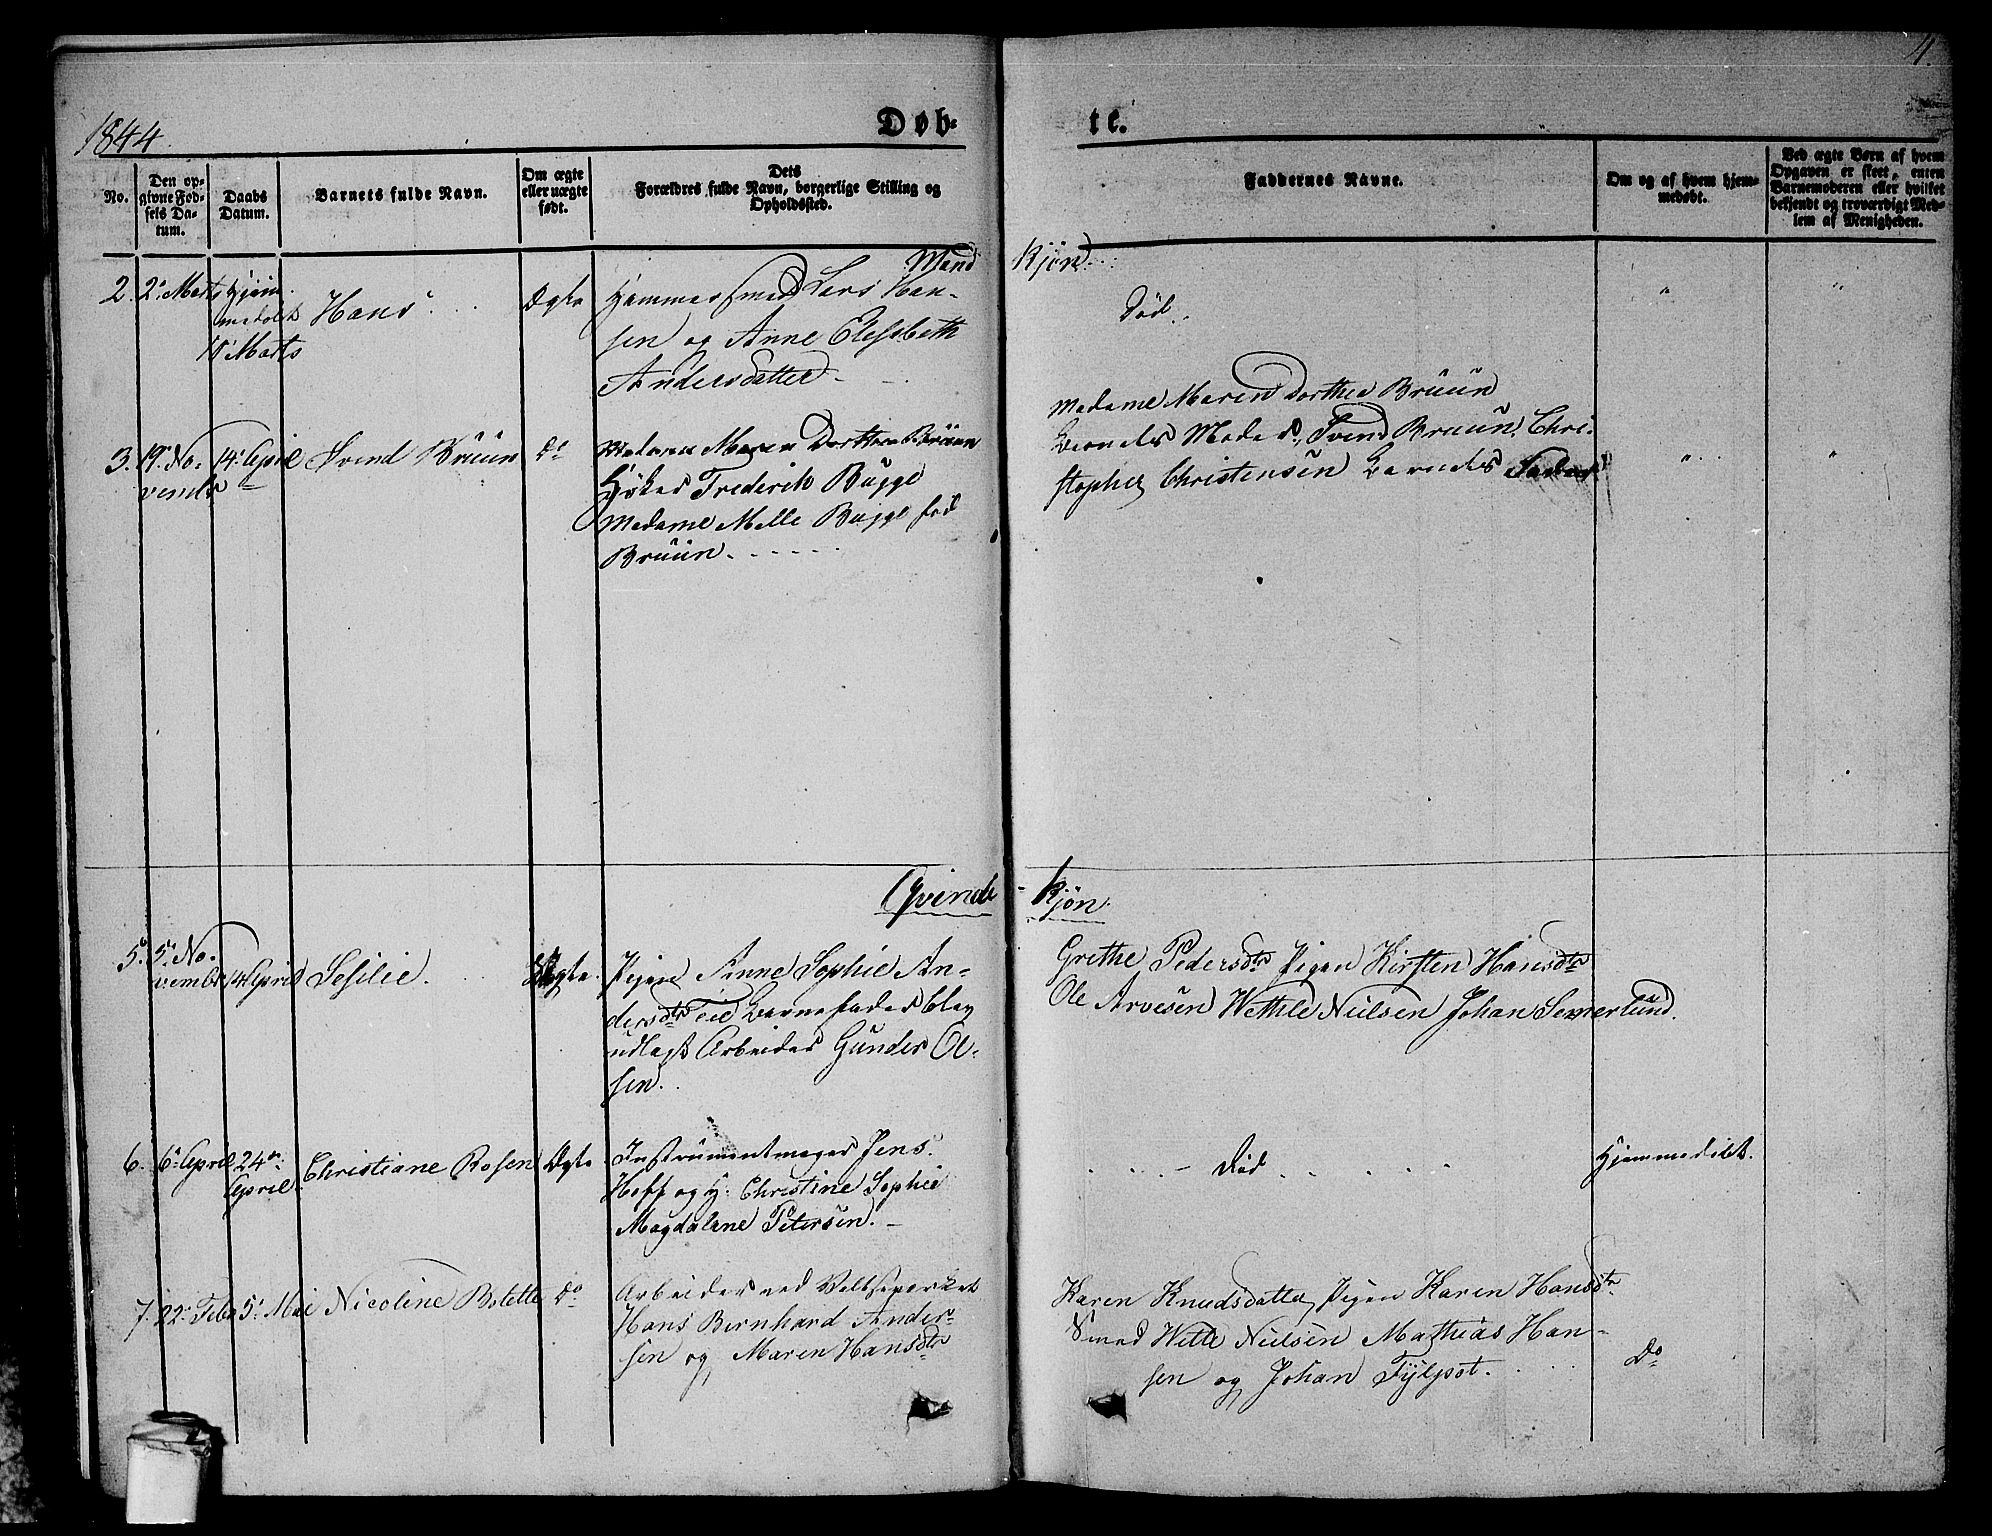 1844.
4.
Døb-
te.
No.
Den op-
givne Fød-
sels Da-
tum.
Daabs
Datum.
Barnets fulde Navn.
Om ægte
eller uægte
født.
Dets
Forældres fulde Navn, borgerlige Stilling og
Opholdssted.
Faddernes Navne.
Om og af hvem hjem-
medøbt.
Ved ægte Børn af hvem
Opgaven er skeet, enten
Barnemoderen eller hvilket
bekjendt og troværdigt Med-
lem af Menigheden.
Mand
Kjøn.
2. 2' Marts
Hjem-
medøbt
Marts
Hans
Ægte
Hammersmed Lars Han-
sen og Anne Elisabeth
Andersdatter
Død
3. 19' No-
vembr
14' April
Svend Bruun
Do
Madame Maren Dorthea Bruun
Høker Frederik Bugge
Madame Melle Bugge fød
Bruun
Madame Maren Dorthea Bruun
Barnets Moder, Svend Bruun, Chri-
stopher Christensen Barnets Fader
Qvinde
Kjøn.
5. 5' No-
vembr
14' April
Sesilie.
Pigen Anne Sophie An-
dersdtr Barnefader blev
udlagt Arbeider Gunder Ol-
sen.
Grethe Pedersdtr Pigen Kirsten Hansdtr
Ole Arvesen Wethle Nielsen Johan Semerlund.
6. 6' April
24de
April
Christiane Rosen
Ægte
Instrumentmager Jens
Hoff og H. Christine Sophie
Magdalene Petersen.
Død
Hjemmedøbt.
7. 22' Febr
5' Mai
Nicoline Botette
Do
Arbeider ved
Hans Bernhard Ander-
sen og Maren Hansdtr
Karen Knudsdatter, Pigen Karen Hansdtr
Smed Wetle Nielsen Mathias Han-
sen og Johan
Do